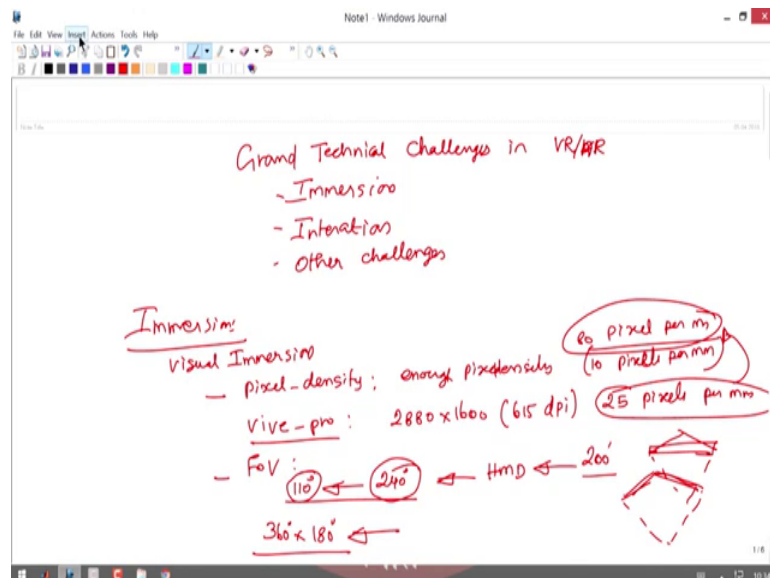 Note1 - Windows Journal
File Edit View Insert Actions Tools Help
Note Title
Grand Technial Challenges in VR/AR
- Immersion
- Interation
- Other challenges
Immersion:
Visual Immersion
80 pixel per m
(10 pixels per mm)
- pixel-density: enough pixel
Vive-pro: 2880x1600 (615 dpi) 25 pixels per mm
- FoV:
110° 240° HMD 200°
360° x 180°
1/6